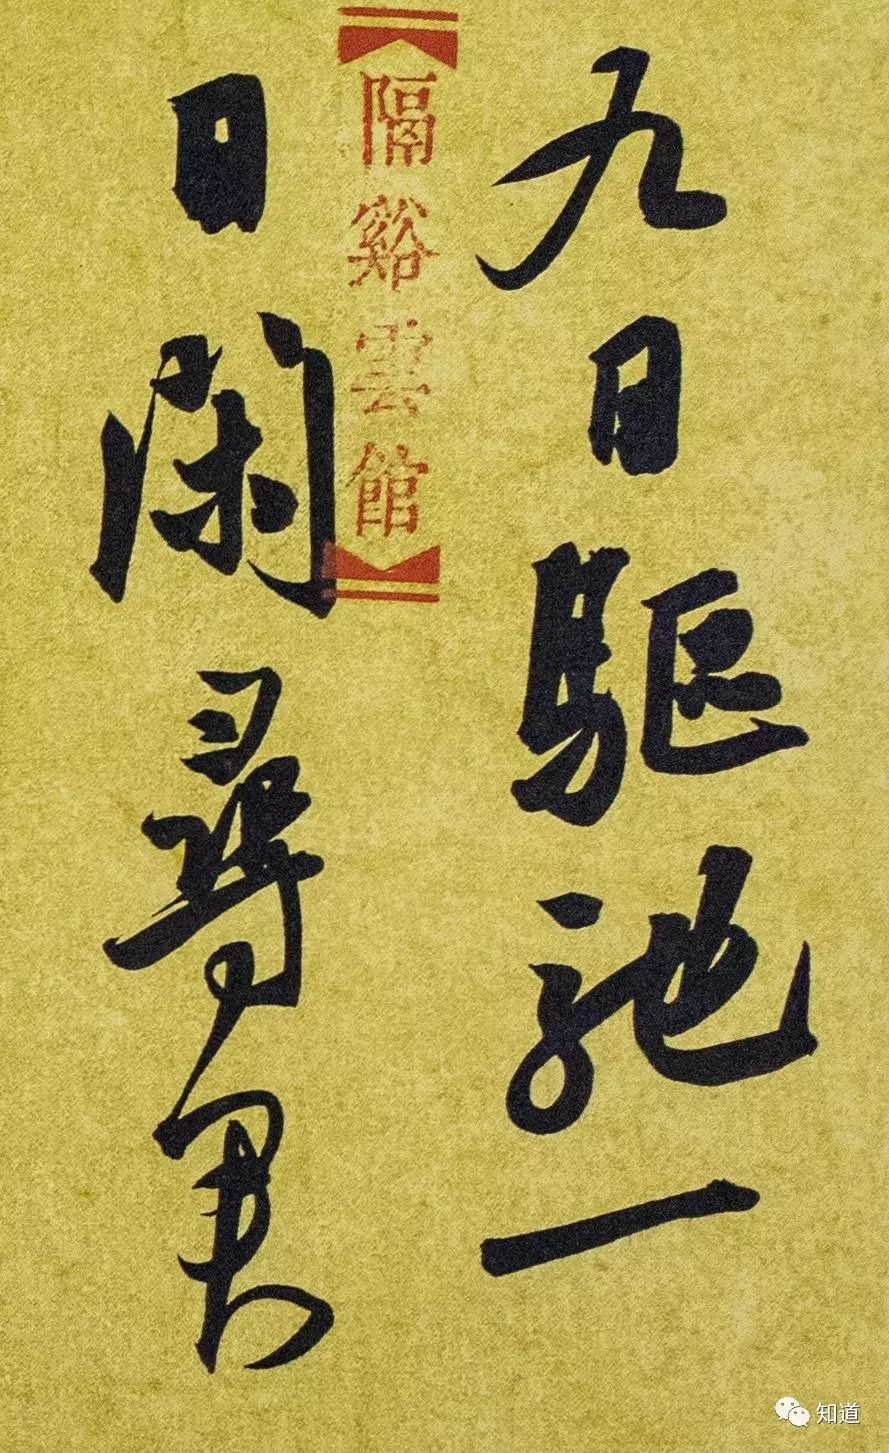 九日驅馳一
日閑尋君
隔谿雲館
知道